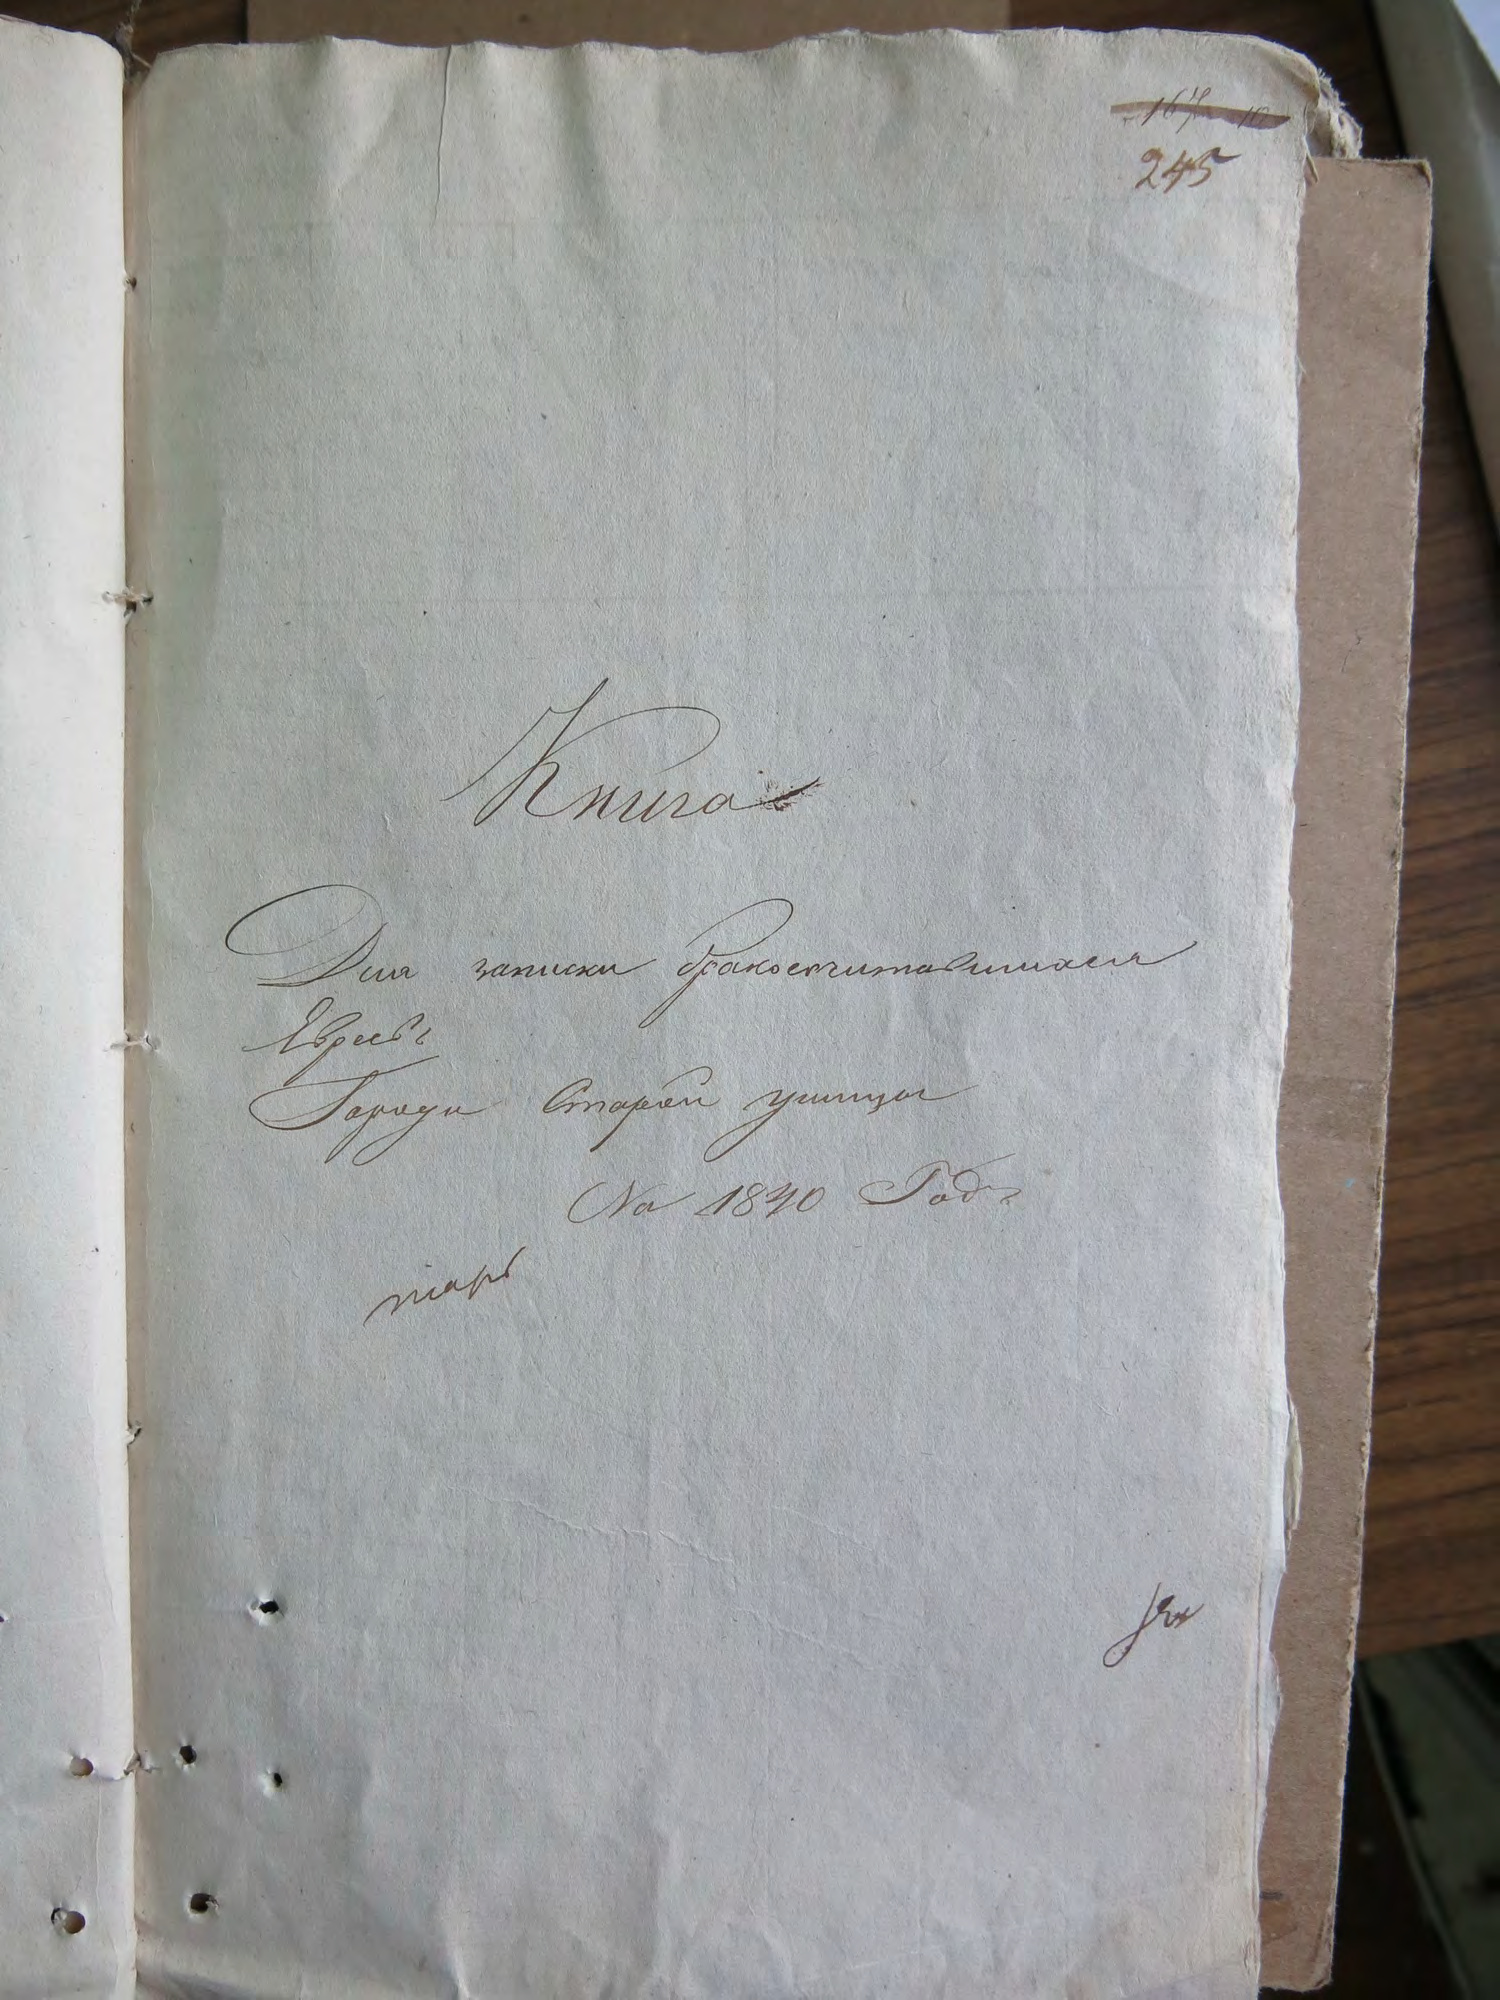 245
Книга
Для записки бракосочитавшихся
Евреевъ
Города Старой ушицы
На 1840 Годъ